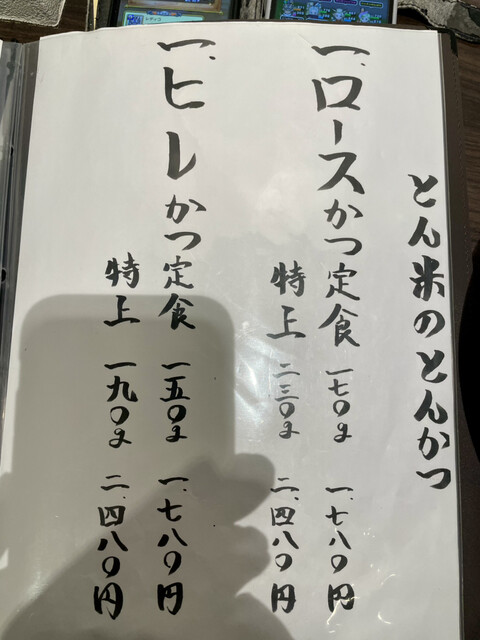 とん米のとんかつ
一、ロースかつ定食 一七〇g 一、七八〇円
特上 二三〇g 二、四八〇円
一、ヒレかつ定食 一五〇g 一、七八〇円
特上 一九〇g 二、四八〇円